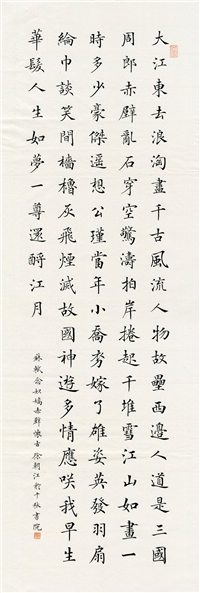 大江東去浪淘盡千古風流人物故壘西邊人道是三國
周郎赤壁亂石穿空驚濤拍岸捲起千堆雪江山如畫一
時多少豪傑遥想公瑾當年小喬初嫁了雄姿英發羽扇
綸巾談笑間檣櫓灰飛煙滅故國神遊多情應咲我早生
華髮人生如夢一尊還酹江月
蘇軾念奴嬌赤壁懷古徐朝江於千秋書院